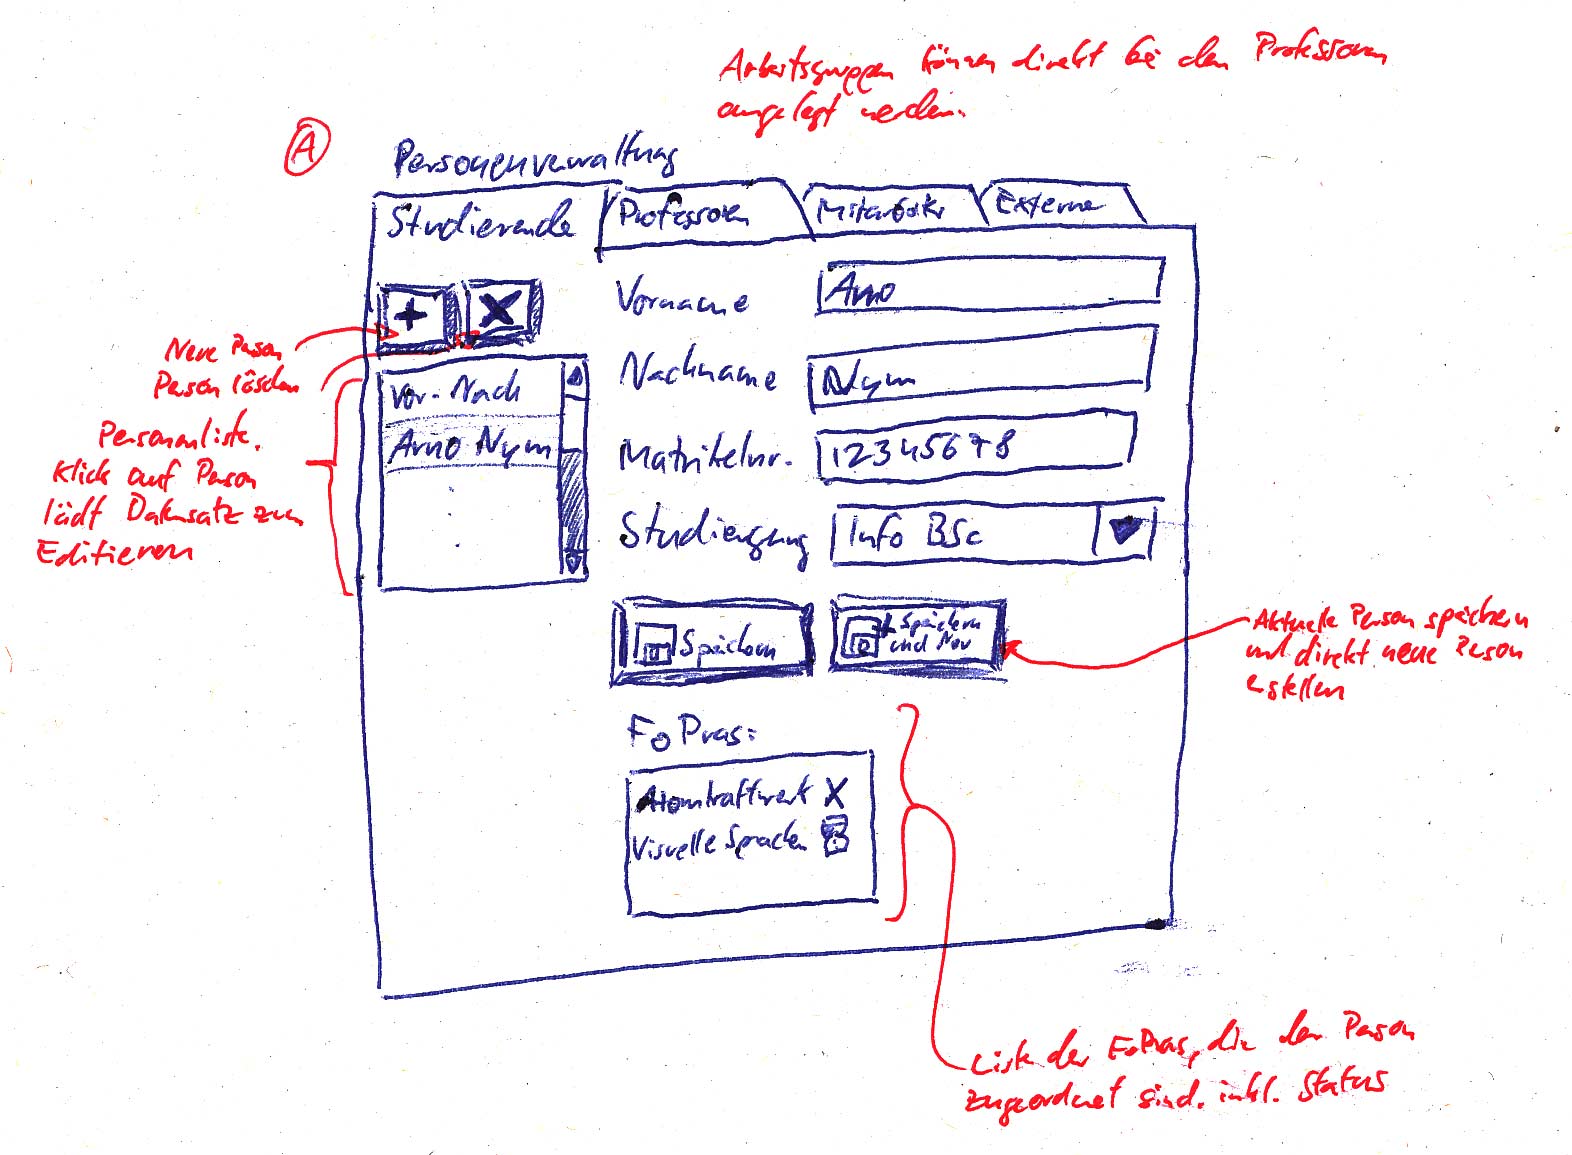 Arbeitsgruppen können direkt bei den Professoren
angelegt werden.
A
Personenverwaltung
Studierende Professoren Mitarbeiter Externe
+ X
Vorname Arno
Neue Person
Person löschen
Vor- Nach
Nachname Nym
Personenliste.
Klick auf Person
lädt Datensatz zum
Editieren
Arno Nym
Matrikelnr. 12345678
Studiengang Info BSc
Speichern
+ Speichern
und Neu
Aktuelle Person speichern
und direkt neue Person
erstellen
FoPras:
Atomkraftwerk X
Visuelle Sprachen
Liste der FoPras, die der Person
zugeordnet sind. inkl. Status